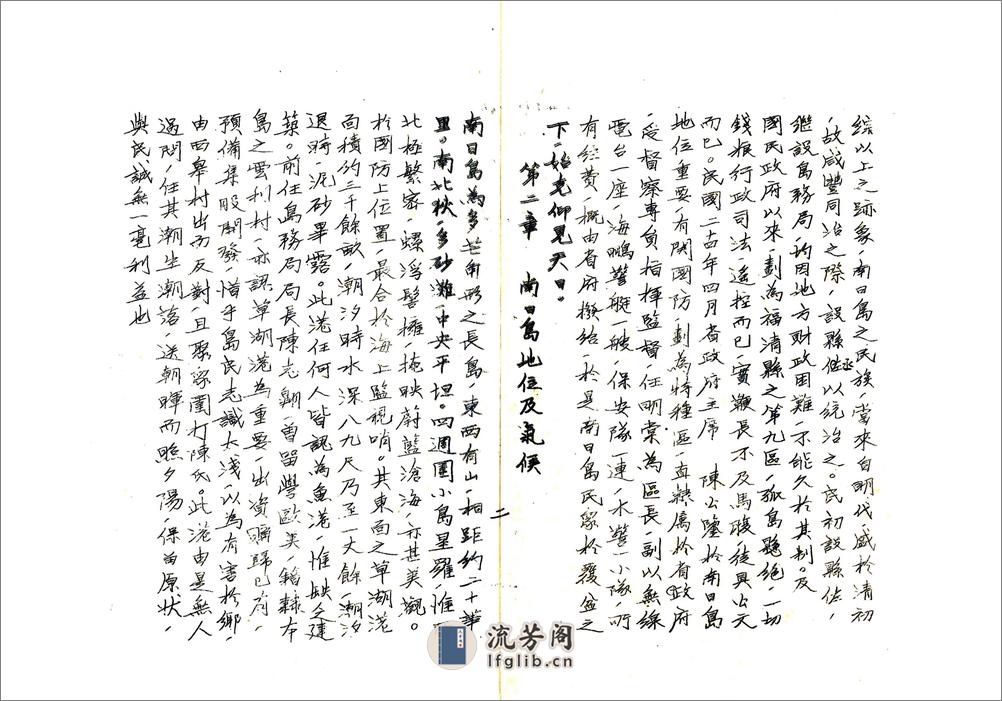 綜以上之跡象，南日島之民族，當來自明代，盛於清初
，故咸豐同治之際，設縣丞以統治之。民初設縣佐，
繼設島務局，均因地方財政困難，不能久於其制。及
國民政府以來，劃為福清縣之第九區，孤島懸絕，一切
錢糧行政司法，遙控而已，實鞭長不及馬腹，徒具公文
而已。民國二十四年四月省政府主席 陳公鑒於南日島
地位重要，有關國防，劃為特種區，直隸屬於省政府
，受督察專員指揮監督，任明棠為區長，副以無線
電台一座，海鵬警艇一艘，保安隊一連，水警一小隊，所
有經費，概由省府撥給，於是南日島民眾於覆盆之
下，始克仰見天日。
第二章 南日島地位及氣候
二
南日島為多芒角形之長島，東西有山，相距約二十華
里。南北狹，多砂灘，中央平坦。四週圍小島星羅，惟
北極繁密，螺浮髻擁，掩映蔚藍滄海，亦甚美觀。
於國防上位置，最合於海上監視哨。其東面之草湖港
面積約三千餘畝，朝汐時水深八九尺乃至一丈餘，潮汐
退時，泥砂畢露。此港任何人皆認為魚港，惟缺乏建
築。前任島務局局長陳志，曾留學歐美，籍隸本
島之雲利村，亦認草湖港為重要，出資購歸已有，
預備集股開發，惜乎島民志識太淺，以為有害於鄉，
由西皋村出而反對，且聚眾圍打陳氏。此港由是無人
過問，任其潮生潮落，送朝暉而照夕陽，保留原狀，
與民誠無一毫利益也
流芳阁
lfglib.cn